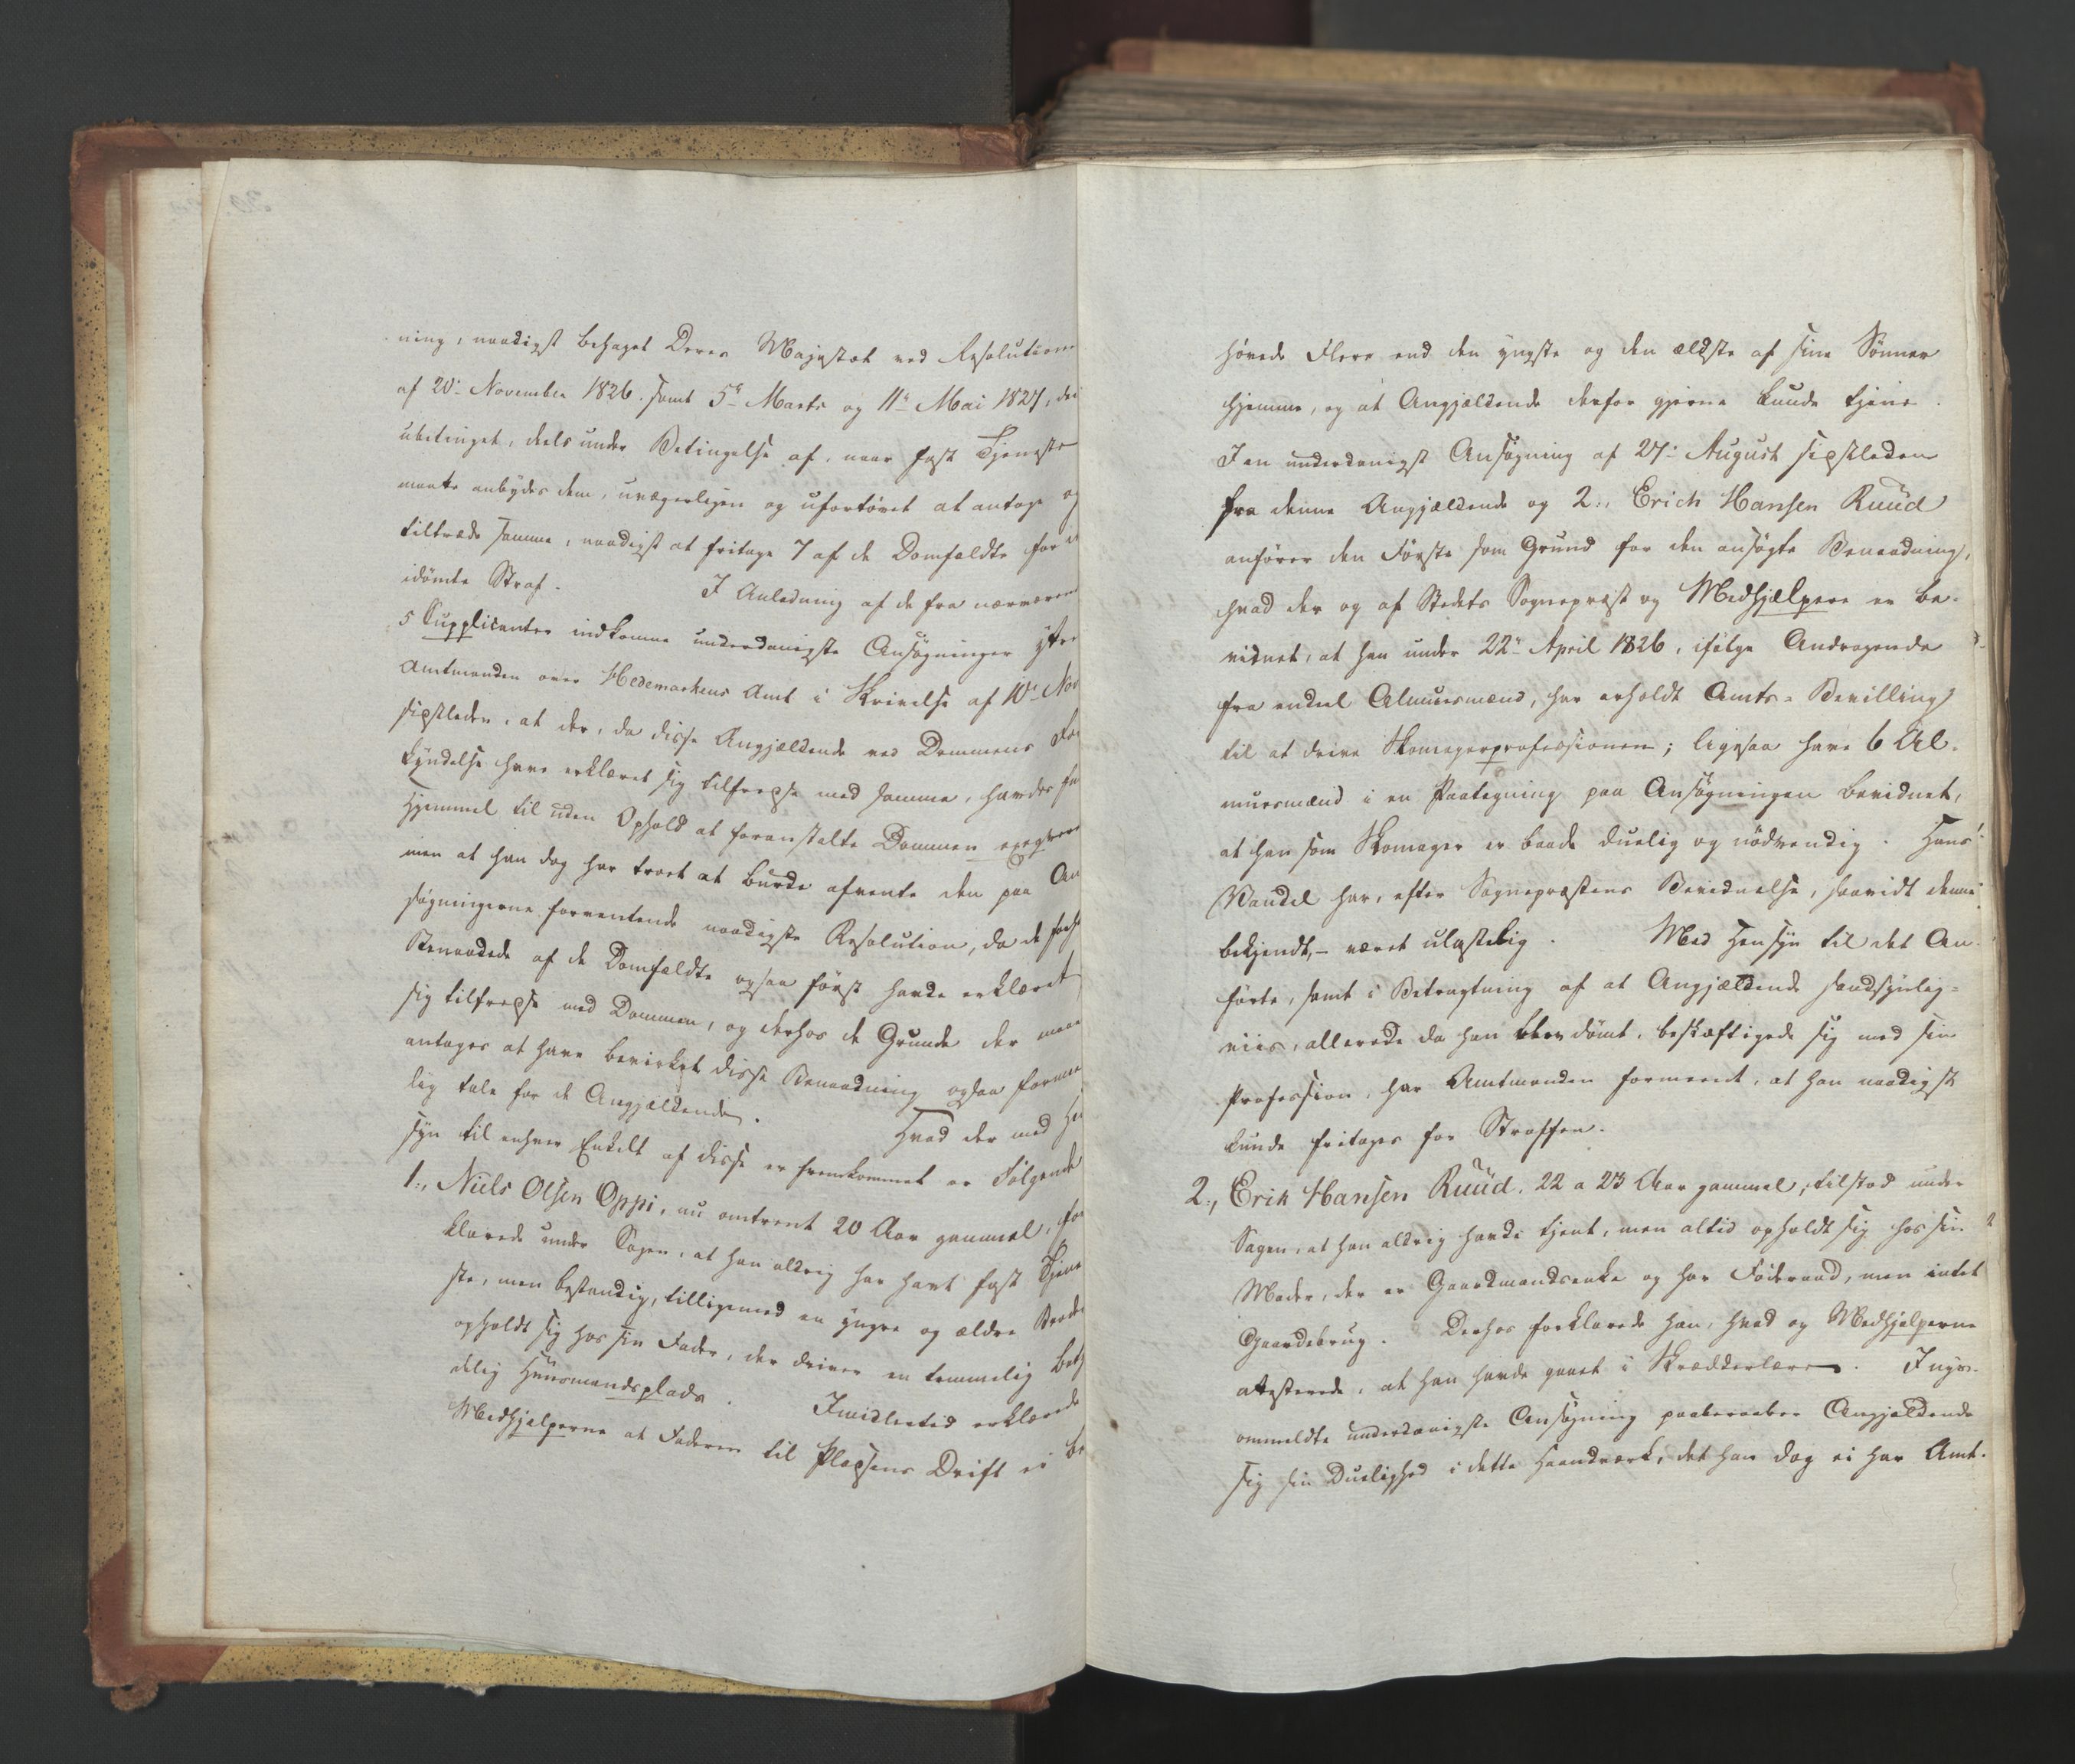 ning, naadigst behaget Deres Majestæt ved Resolutione
af 20de November 1826. samt 5te Marts og 11te Mai 1827, de
ubetinget, deels under Betingelse af, naar fast Tjeneste
maatte anbydes dem, uvægerligen og ufortøvet at antage og
tiltræde samme, naadigst at fritage 7 af de Domfældte for
idømte Straf. I Anledning af de fra nærværen
5 Supplicanter indkomne underdanigste Ansøgninger ytre
Amtmanden over Hedemarkens Amt i Skrivelse af 10de Nov
sidstleden, at der, da disse Angjældende ved Dommens For
kyndelse have erklæret sig tilfredse med samme, havdes
Hjemmel til uden Ophold at foranstalte Dommen exeqvere
men at han dog har troet at burde afvente den paa An
søgningerne forventende naadigste Resolution, da de
Benaadede af de Domfældte ogsaa først havde erklæret
sig tilfredse med Dommen, og derhos de Grunde der maae
antages at have bevirket disse Benaadning ogsaa
lig tale for de Angjældende. Hvad der med Hen
syn til enhver Enkelt af disse er fremkommet er Følgende
1., Niels Olsen Oppi, nu omtrent 20 Aar gammel, for
klarede under Sagen, at han aldrig har havt fast Tjene
ste, men bestandig, tilligemed en yngre og ældre Brode
opholdt sig hos sin Fader, der driver en temmelig bety
delig Huusmandsplads. Imidlertid erklærede
Medhjelperne at Faderen til Pladsens Drift ei be
høvede Flere end den yngste og den ældste af sine Sønner
hjemme, og at Angjældende derfor gjerne kunde tjene.
I en underdanigst Ansøgning af 27de August sidstleden
fra denne Angjældende og 2., Erich Hansen Ruud
anfører den Første som Grund for den ansøgte Benaadning,
hvad der og af Stedets Sognepræst og Medhjælpere er be-
vidnet, at han under 22de April 1826, ifølge Andragende
fra endeel Almuesmænd, har erholdt Amts-Bevilling
til at drive Skomagerprofessionen; ligesaa have 6 Al-
muesmænd i en Paategning paa Ansøgningen bevidnet,
at han som Skomager er baade duelig og nødvendig. Hans
Vandel har, efter Sognepræstens Bevidnelse, saavidt denne
bekjendt, - været ulastelig. Med Hensyn til det An-
førte, samt i Betragtning af at Angjældende sandsynlig-
viis, allerede da han blev dømt, beskæftigede sig med sin
Profession, har Amtmanden formeent, at han naadigst
kunde fritages for Straffen.
2., Erik Hansen Ruud, 22 a 23 Aar gammel, tilstod under
Sagen, at han aldrig havde tjent, men altid opholdt sig hos sin
Moder, der er Gaardmandsenke og har Føderaad, men intet
Gaardsbrug. Derhos forklarede han, hvad og Medhjelperne
attesterede, at han havde gaaet i Skrædderlære. I nys-
ommeldte underdanigste Ansøgning paaberaaber Angjældende
sig sin Duelighed i dette Haandværk, det han dog ei har Amt-